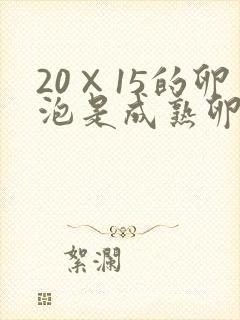 20×15的卵
泡是成熟卵
絮澜